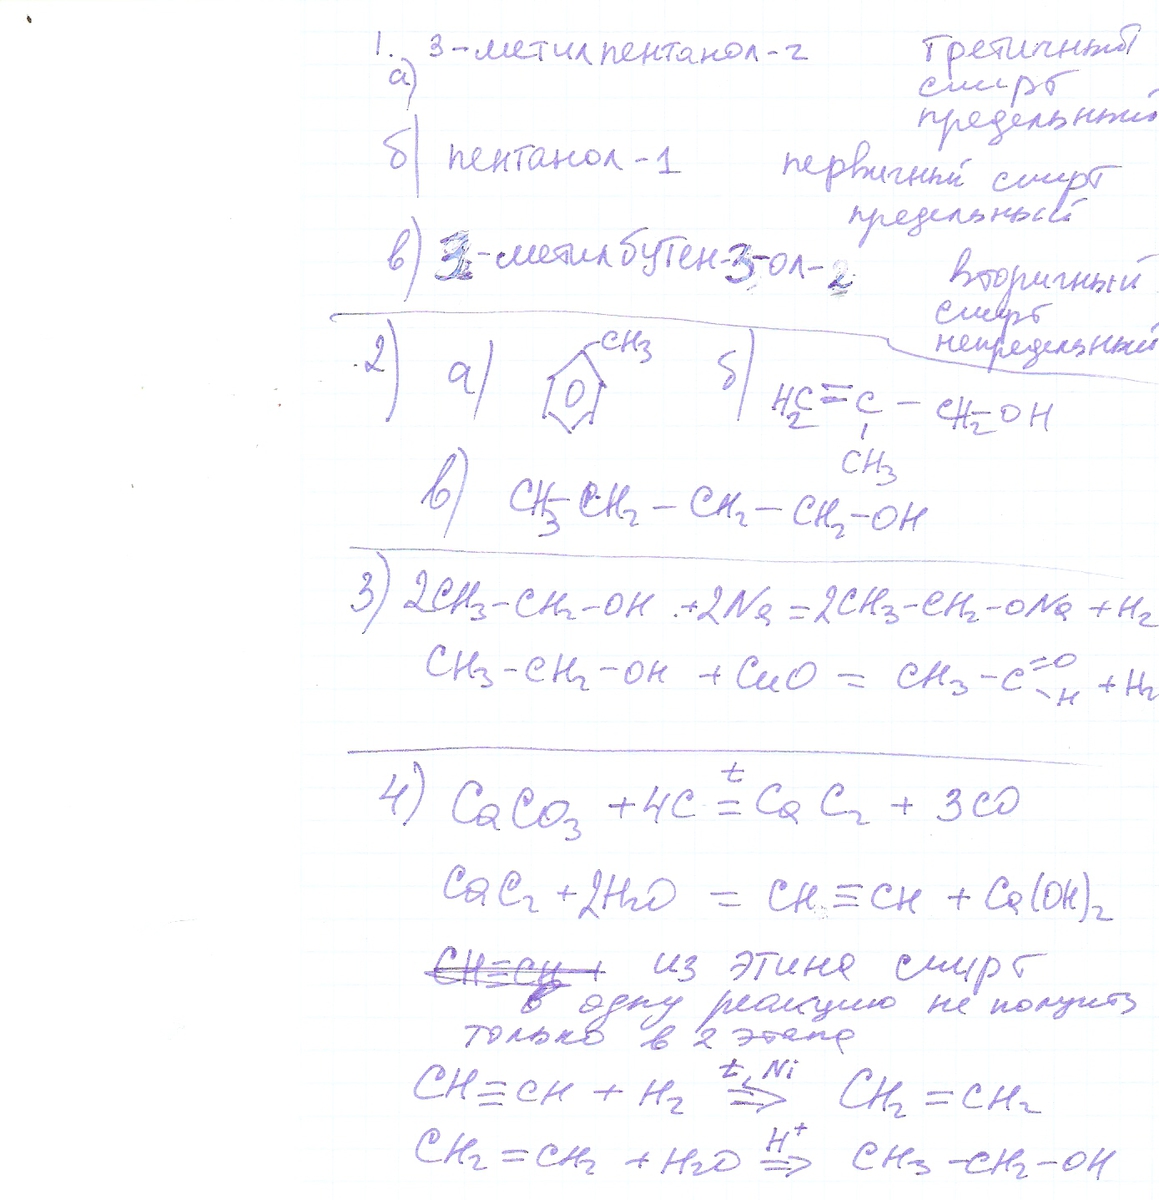 1. 3-метилпентанол-2 третичный
а) спирт
предельный
б) пентанол-1 первичный спирт
предельный
в) 3-метилбутен-3-ол-2 вторичный
спирт
непредельный
2) а) CH3 б) H2C=C-CH2-OH
CH3
в) CH3-CH2-CH2-CH2-OH
3) 2CH3-CH2-OH +2Na=2CH3-CH2-ONa +H2
CH3-CH2-OH +CuO = CH3-C=O-H +H2
4) CaCO3 +4C t= CaC2 + 3CO
CaC2 +2H2O = CH≡CH + Ca(OH)2
CH≡CH + из этина спирт
в одну реакцию не получить
только в 2 этапа
CH≡CH + H2 t, Ni ⇒ CH2=CH2
CH2=CH2 +H2O H+ ⇒ CH3-CH2-OH